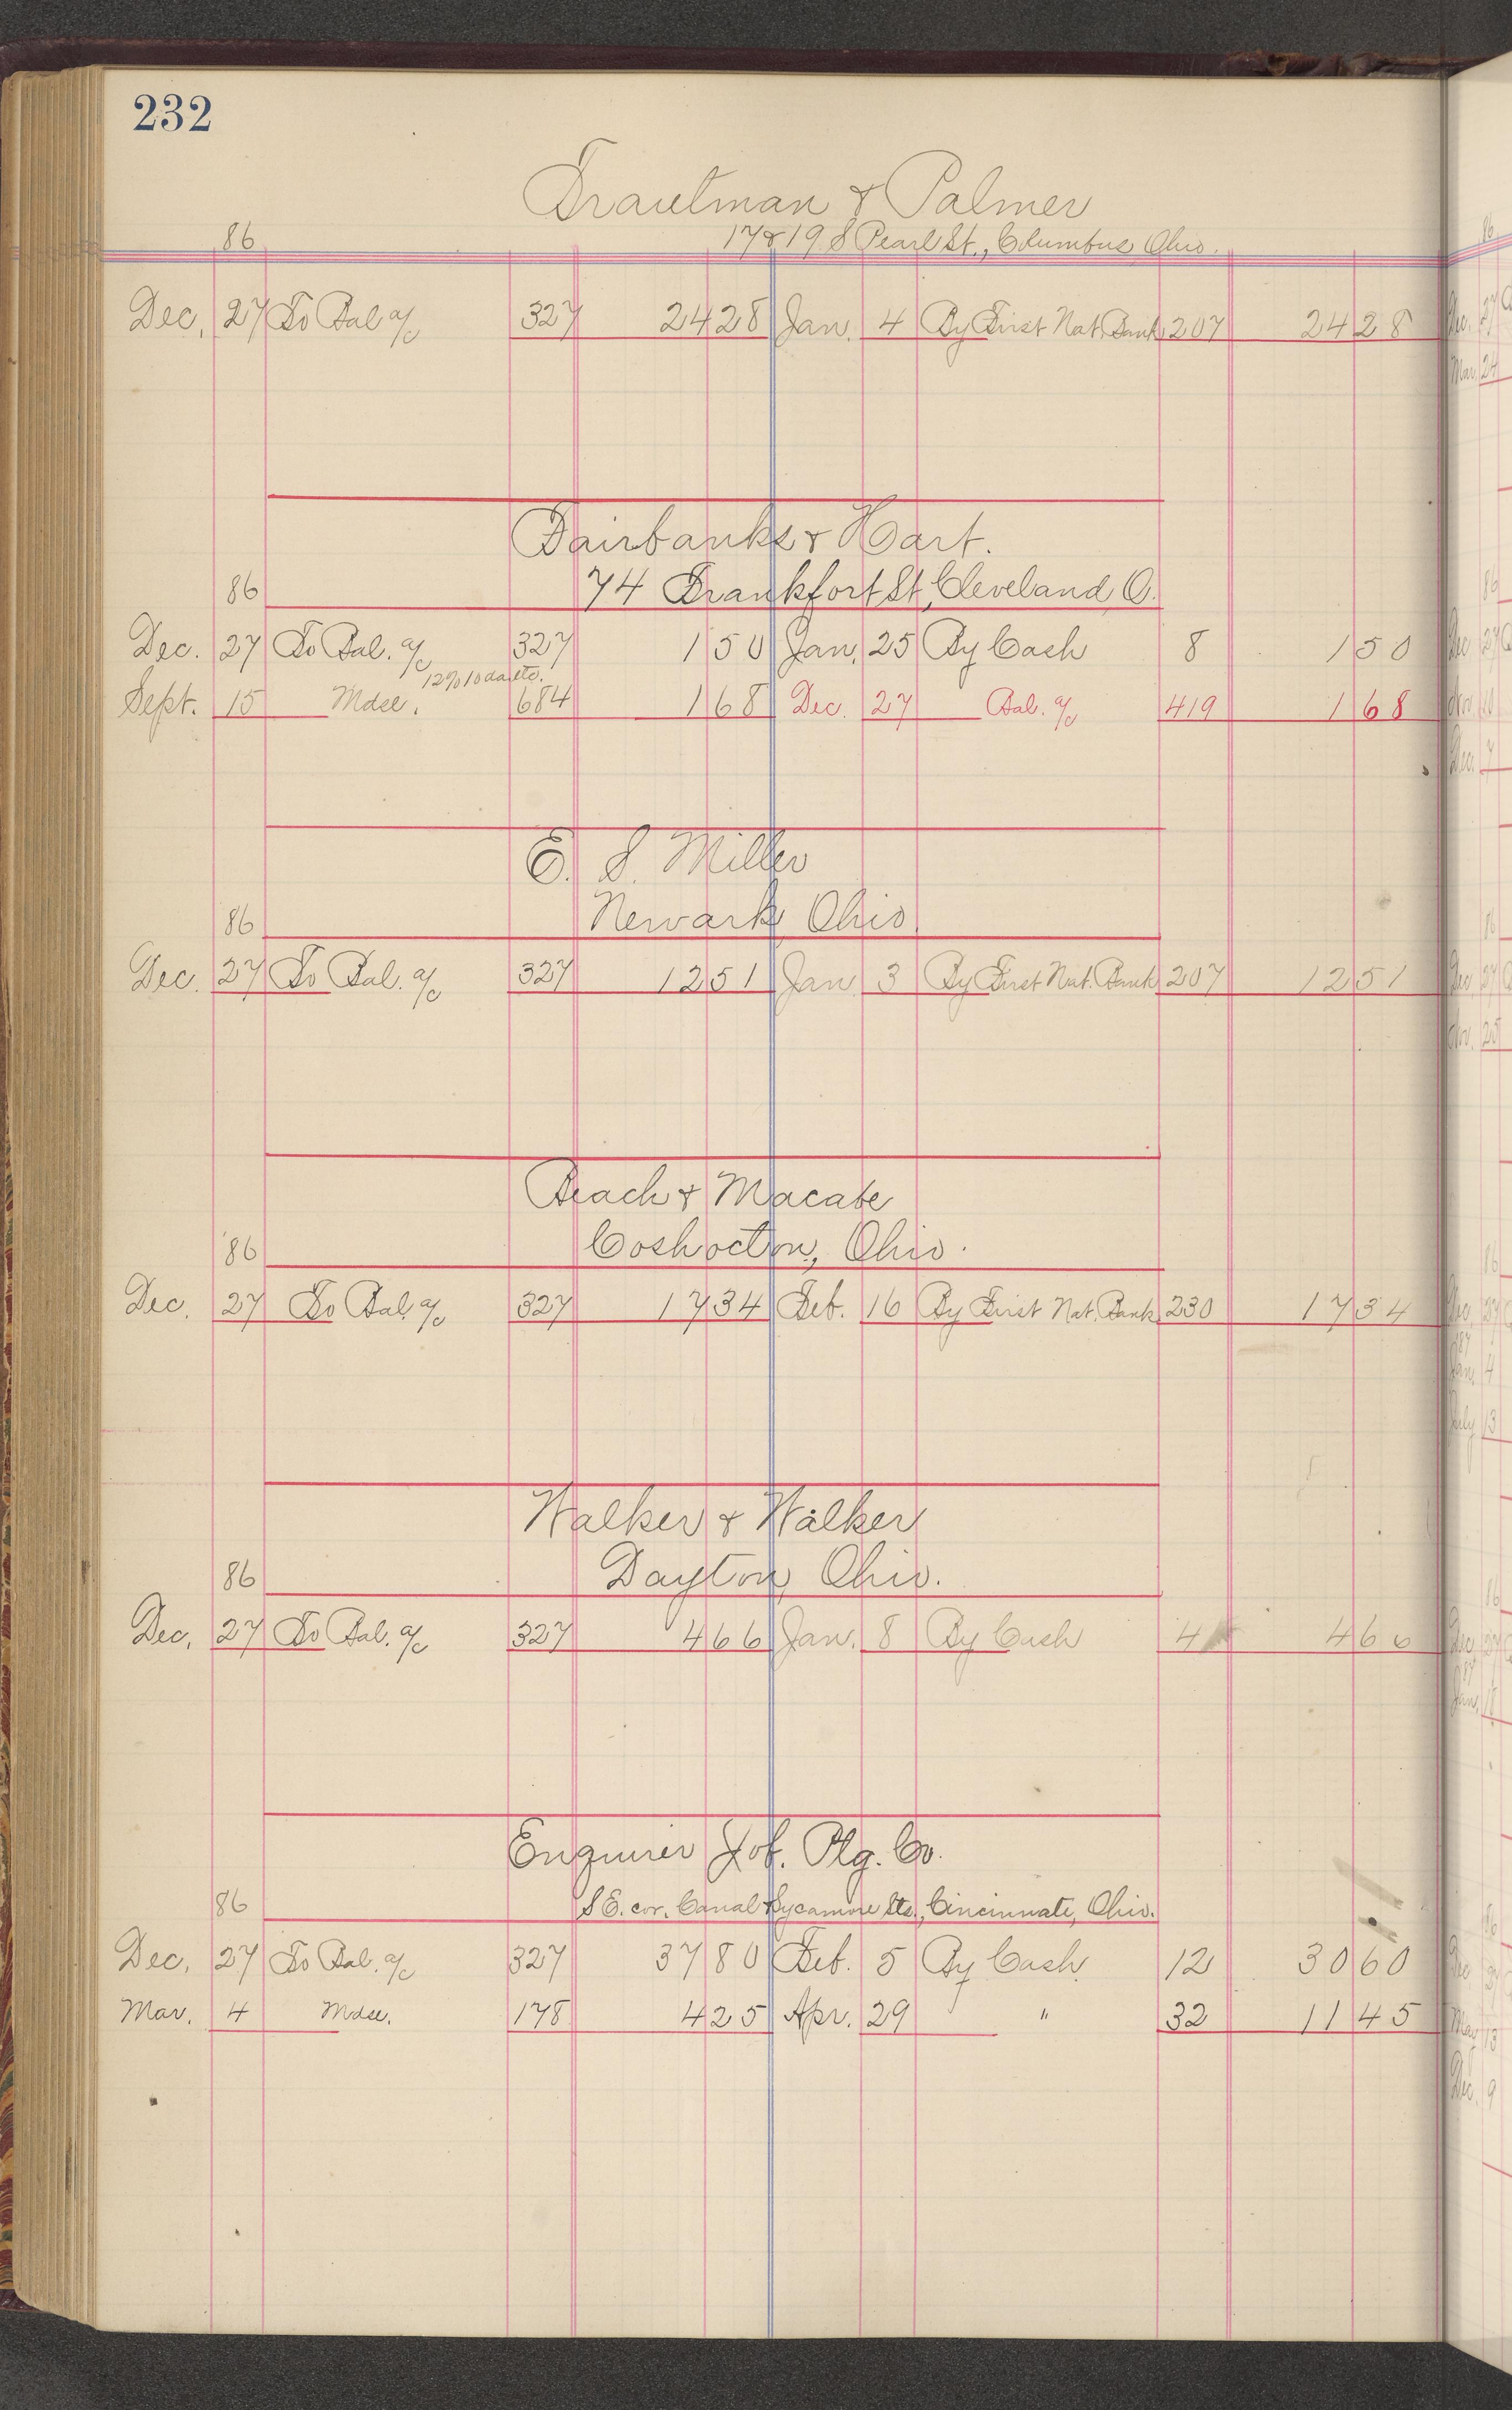 232
Trautman & Palmer
86 17 & 19 S Pearl St., Columbus, Ohio.
Dec. 27 To Bal a/c 327 24 28 Jan. 4 By First Nat. Bank 207 24 28
Fairbanks & Hart.
86 74 Frankfort St, Cleveland, O.
Dec. 27 To Bal. a/c 327 1 50 Jan. 25 By Cash 8 1 50
12% 10 da etc.
Sept. 15 Mdse. 684 1 68 Dec. 27 Bal. a/c 419 1 68
E. S. Miller
86 Newark, Ohio.
Dec. 27 To Bal. a/c 327 12 51 Jan. 3 By First Nat. Bank 207 12 51
Beach & Macabe
'86 Coshocton, Ohio.
Dec. 27 To Bal. a/c 327 17 34 Feb. 16 By First Nat. Bank 230 17 34
Walker & Walker
86 Dayton, Ohio.
Dec. 27 To Bal. a/c 327 4 66 Jan. 8 By Cash 4 4 66
Enquirer Job. Ptg. Co.
86 S E. cor. Canal & Sycamore Sts., Cincinnate, Ohio.
Dec. 27 To Bal. a/c 327 37 80 Feb. 5 By Cash 12 30 60
Mar. 4 Mdse. 178 4 25 Apr. 29 " 32 11 45